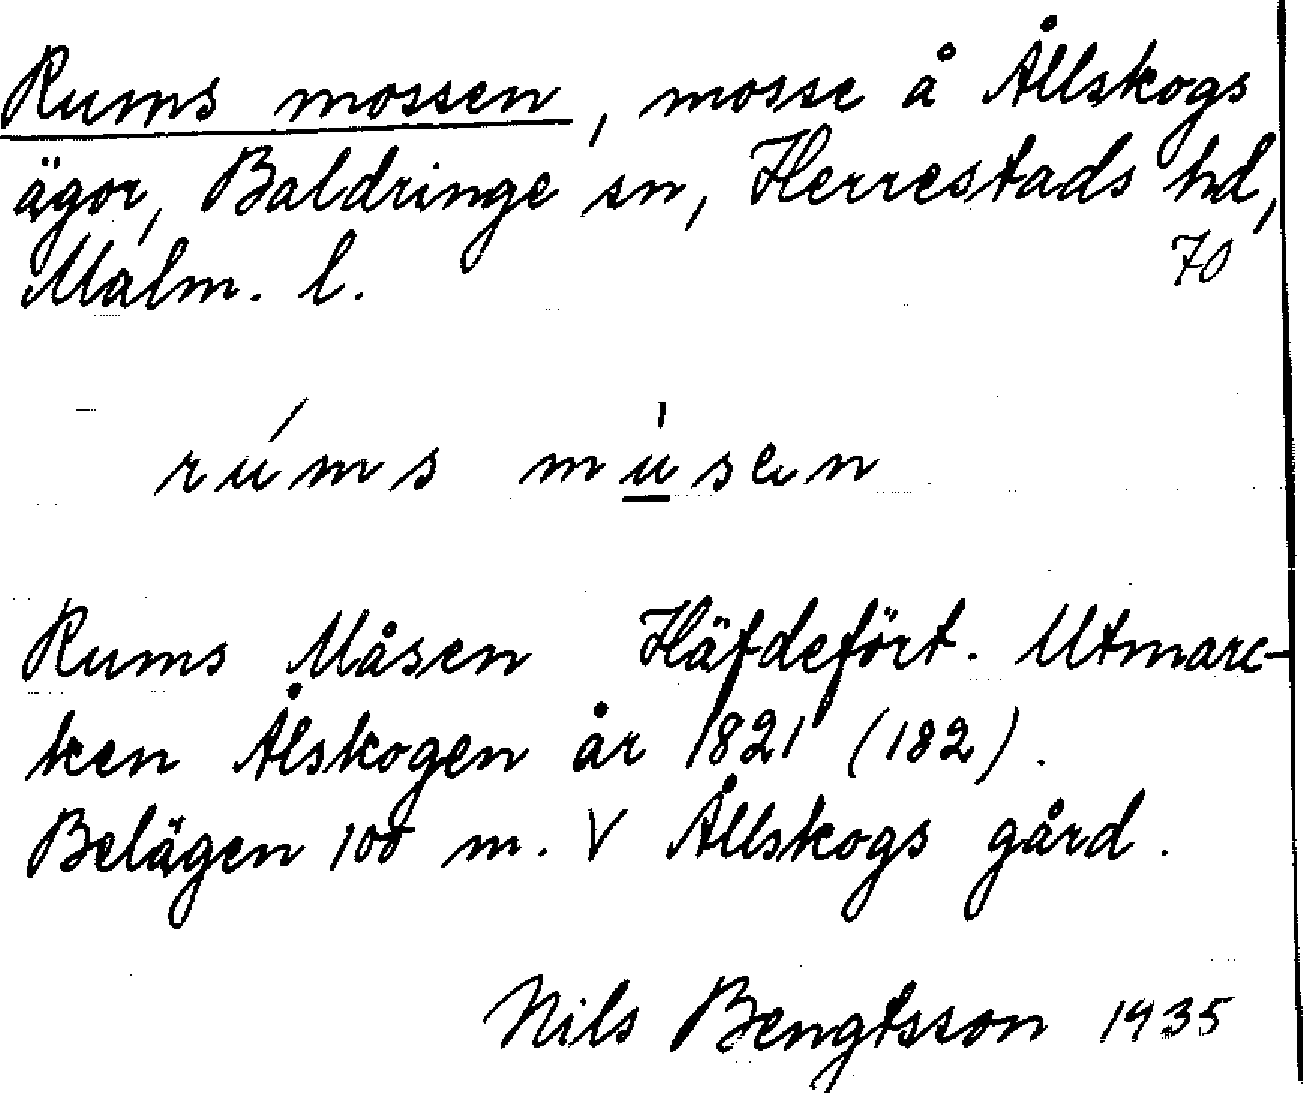 Rums mossen, mosse å Ållskogs
ägor, Baldringe sn, Herrestads hd,
Malm. l. 70
rúms mu̲̍sen
Rums Måsen Häfdefört. Utmarc-
ken Ålskogen år 1821 (182).
Belägen 100 m. V Ållskogs gård.
Nils Bengtsson 1935